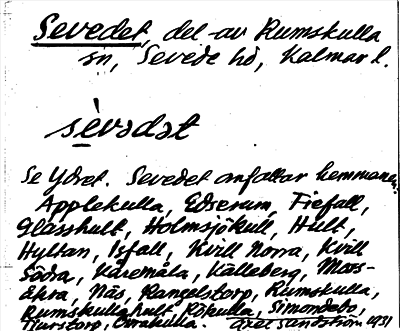 Sevedet, del av Rumskulla
sn, Sevede hd, Kalmar l.
sèvədət
Se Ydret. Sevedet omfattar hemmanen
Applekulla, Edserum, Frefall,
Glasshult, Holmsjökull, Hult,
Hyltan, Isfall, Kvill Norra, Kvill
Södra, Kåremåla, Källeberg, Mors-
åkra, Näs, Rangelstorp, Rumskulla,
Rumskullahult, Rökulla, Simondebo,
Tjurstorp, Axel Sandström 1931